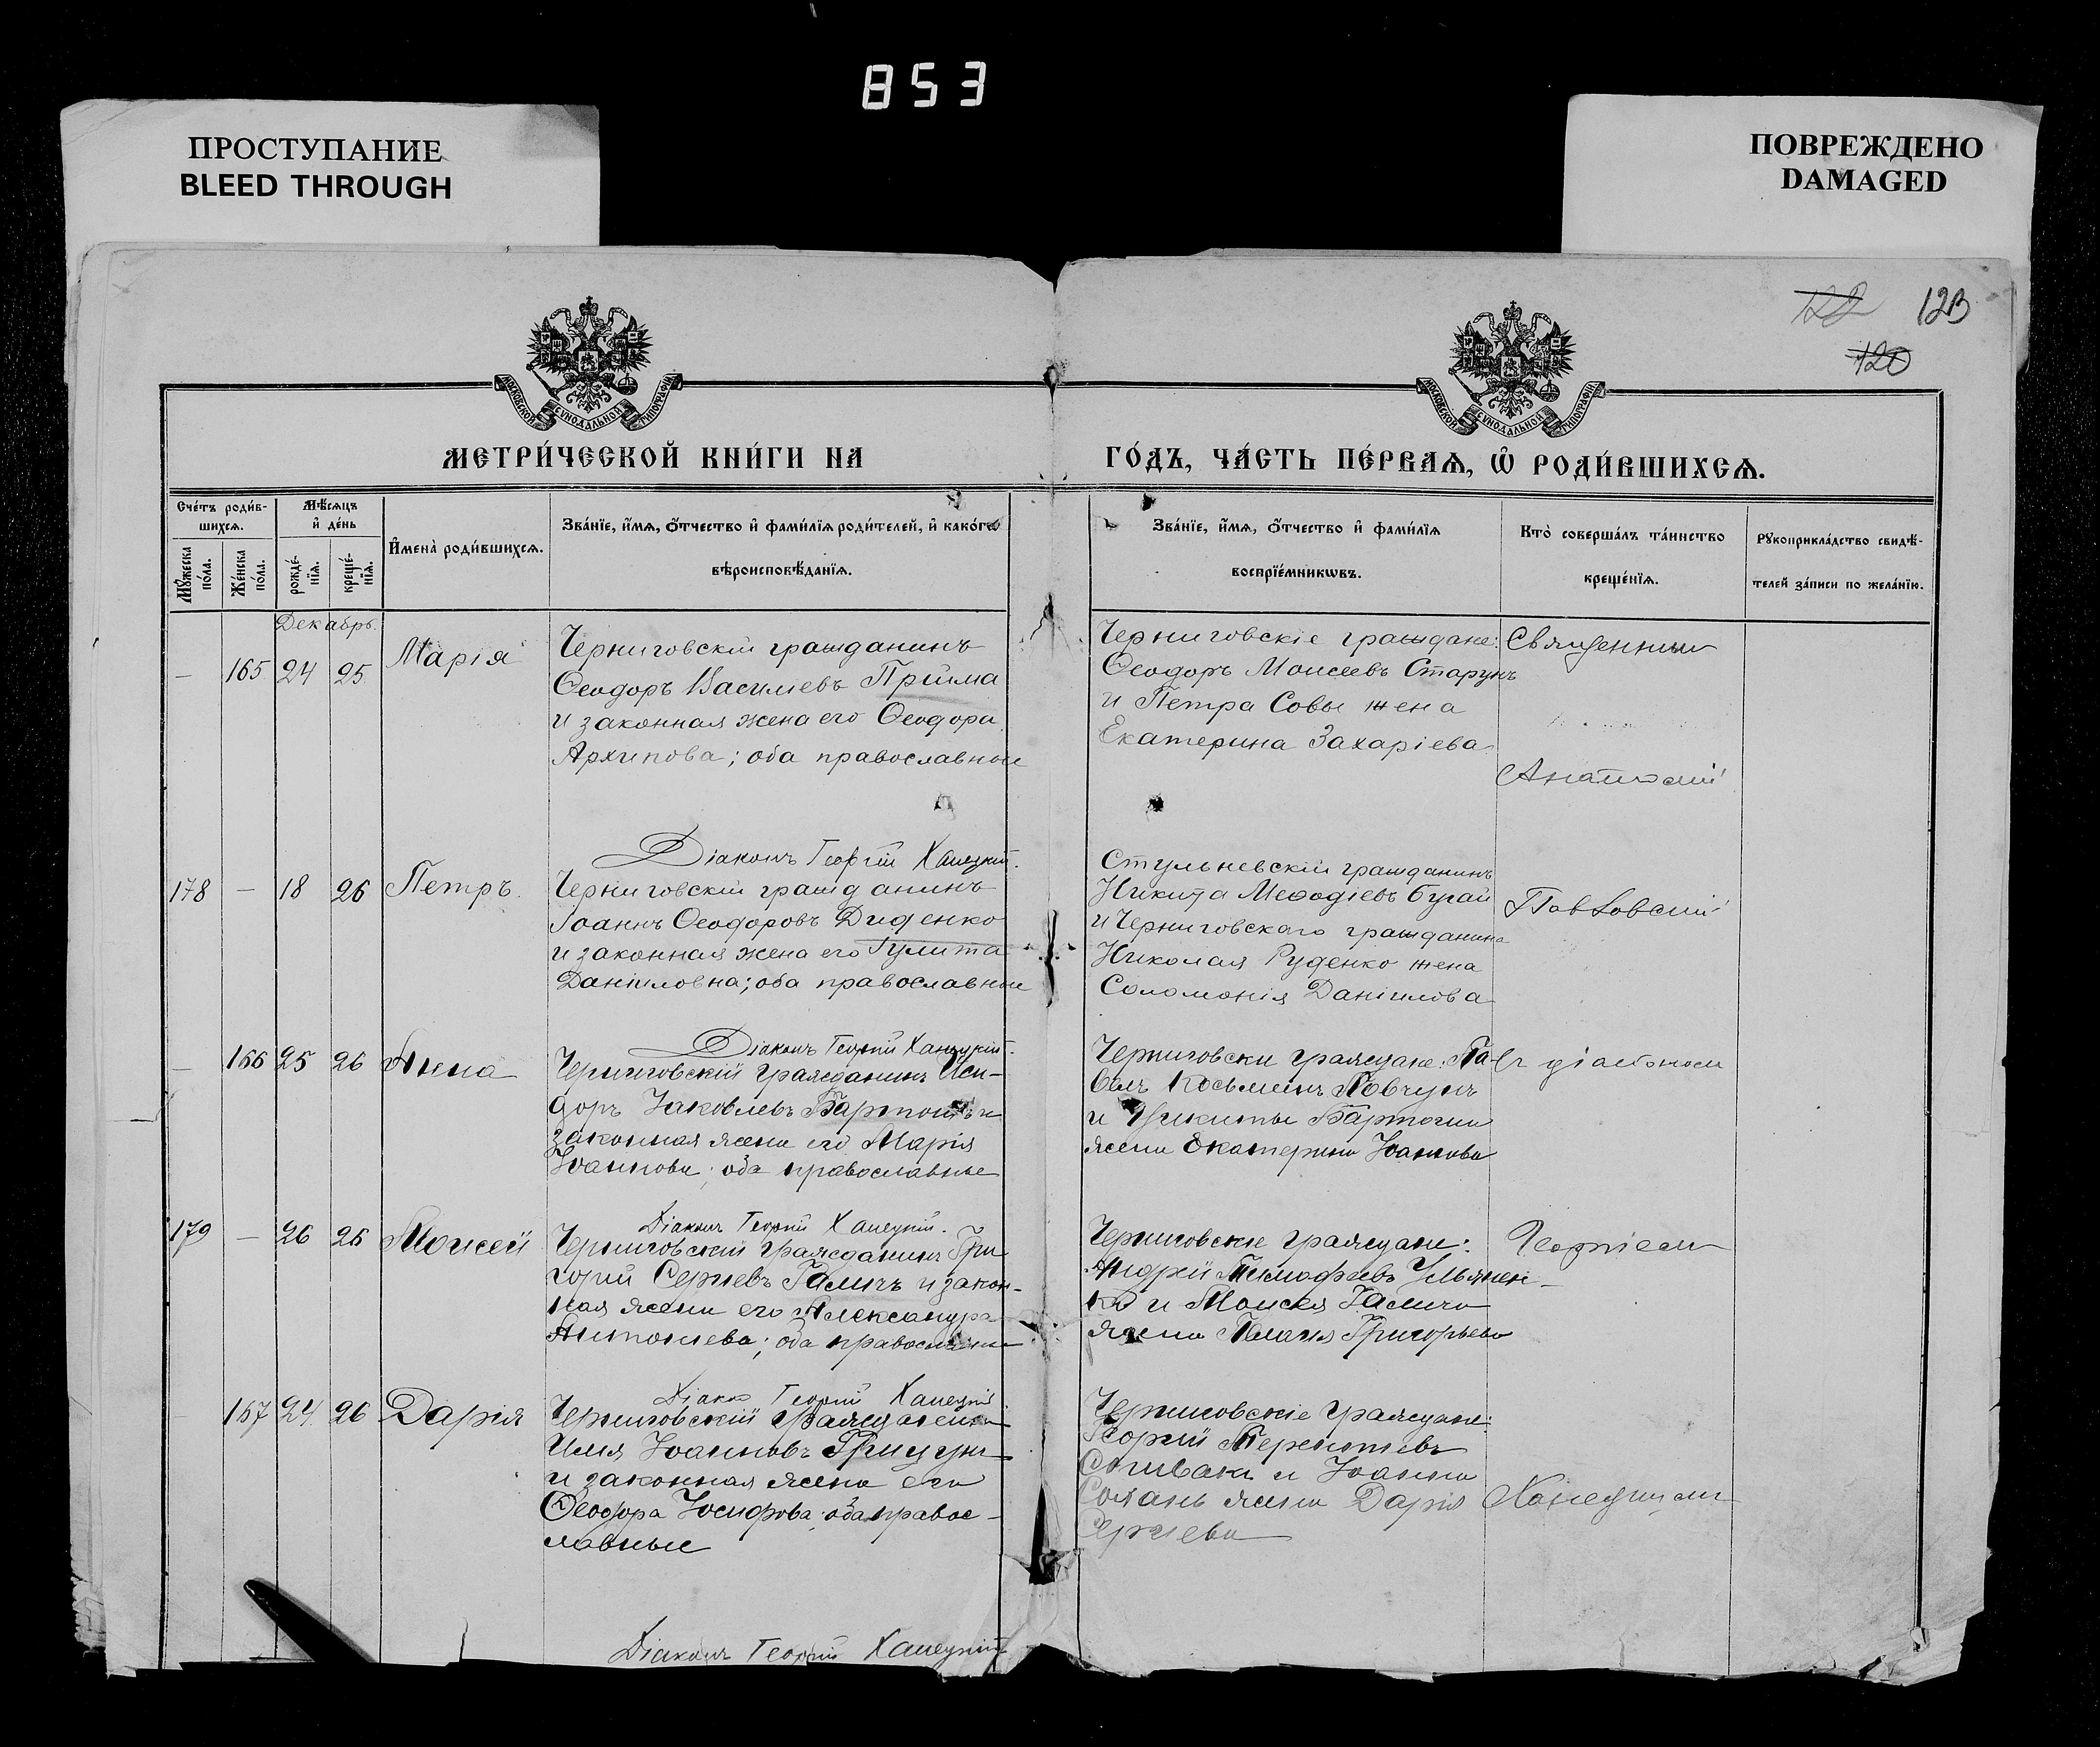 853
ПРОСТУПАНИЕ
BLEED THROUGH
ПОВРЕЖДЕНО
DAMAGED
122 123
120
МОСКОВСКОЙ СУНОДАЛЬНОЙ ТИПОГРАФІИ
МОСКОВСКОЙ СУНОДАЛЬНОЙ ТИПОГРАФІИ
МЕТРИ́ЧЕСКОЙ КНИ́ГИ НА
ГО́ДЪ, ЧА́СТЬ ПЕ́РВАѦ, Ѽ РОДИ́ВШИХСѦ.
Сче́тъ роди́в-
шихсѧ.
Мꙋ́жеска
по́ла.
Же́нска
по́ла.
Мѣ́сѧцъ
и҆ де́нь
рожде́-
нїѧ.
креще́-
нїѧ.
И҆мена̀ роди́вшихсѧ.
Зва́нїе, и҆́мѧ, ѻ҆́тчество и҆ фами́лїѧ роди́телей, и҆ како́гѡ
вѣроисповѣ́данїѧ.
Зва́нїе, и҆́мѧ, ѻ҆́тчество и҆ фами́лїѧ
воспрїе́мникѡвъ.
Кто̀ соверша́лъ та́инство
креще́нїѧ.
Рꙋкоприкла́дство свидѣ́-
телей за́писи по жела́нїю.
Декабрь.
— 165 24 25 Марія
Черниговскій гражданинъ
Ѳеодоръ Васильевъ Прійма
и законная жена его Ѳеодора
Архипова; оба православные
Черниговскіе граждане:
Ѳеодоръ Моисеевъ Старунъ
и Петра Совы жена
Екатерина Захаріева
Священникъ
Анатолій
Діаконъ Георгій Ханецкій.
178 — 18 26 Петръ.
Черниговскій гражданинъ
Іоаннъ Ѳеодоровъ Диденко
и законная жена его Іулита
Даніиловна; оба православные
Стульневскій гражданинъ
Никита Меѳодіевъ Бугай
и Черниговскаго гражданина
Николая Руденко жена
Соломонія Даніилова
Павловскій
Діаконъ Георгій Ханецкій.
— 166 25 26 Анна
Черниговскій гражданинъ Иси-
доръ Іаковлевъ и
законная жена его Марія
Іоаннова; оба православные
Черниговскіе граждане: Па-
велъ Косьминъ Повчунъ
и Никиты
жена Екатерина Іоаннова
съ діакономъ
Діаконъ Георгій Ханецкій.
179 — 26 26 Моисей
Черниговскій гражданинъ Гри-
горій Сергіевъ Галичъ и закон-
ная жена его Александра
Антоніева; оба православные
Черниговскіе граждане:
Андрей Тимофеевъ Ульянен-
ко и Моисея Галича
жена Пелагія Григорьева
Георгіемъ
Діаконъ Георгій Ханецкій
167 24 26 Дарія
Черниговскій гражданинъ
Илія Іоанновъ Грицунъ
и законная жена его
Ѳеодора Іосифова; оба правос-
лавные
Черниговскіе граждане:
Георгій Терентіевъ
Спивакъ и Іоанна
жена Дарія
Сергіева
Ханецкимъ
Діаконъ Георгій Ханецкій